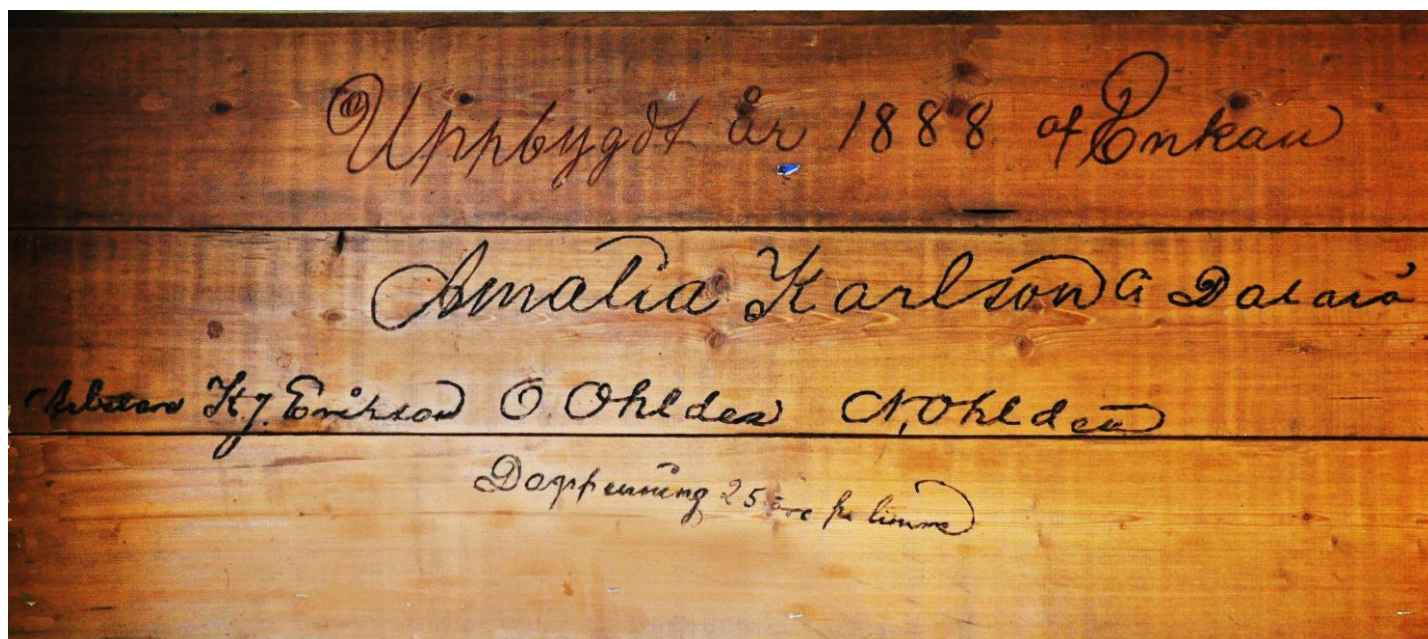 Uppbygdt år 1888 af Enkan
Amalia Karlson å Dalarö
Arbetare K J. Erikson O. Ohlden N. Ohlden
Dagpenning 25 öre pr timme